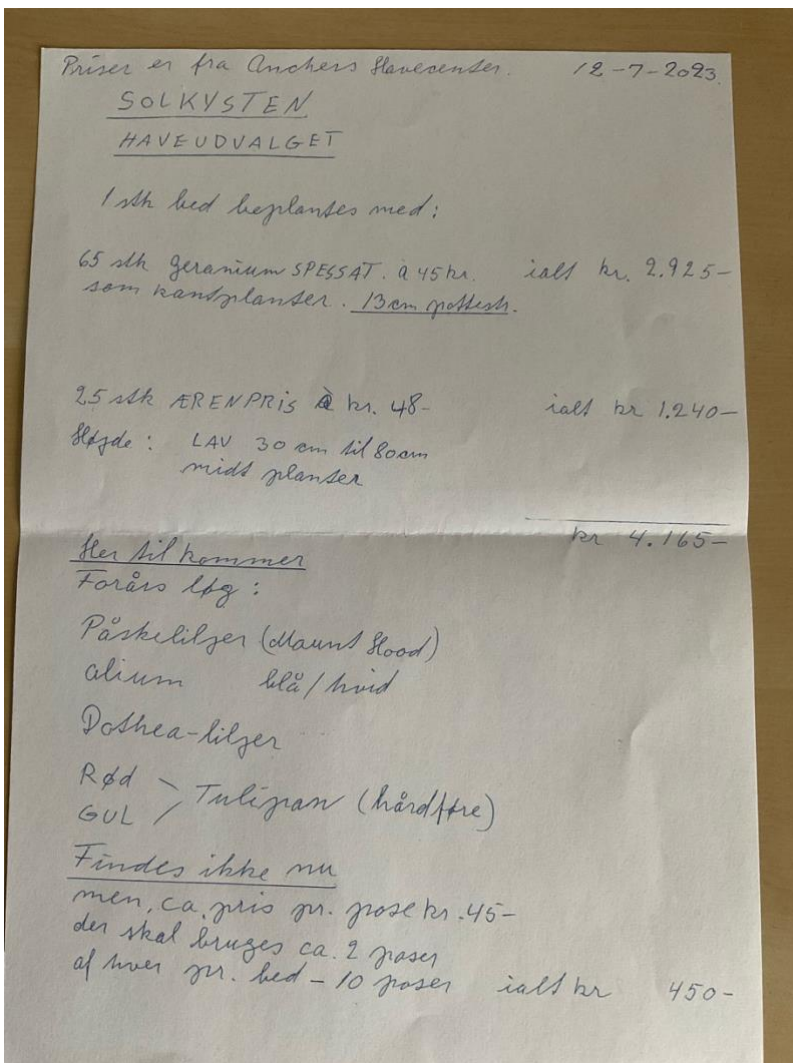 Priser er fra Anchers Havecenter. 12-7-2023.
SOLKYSTEN
HAVEUDVALGET
1 stk bed beplantes med:
65 stk geranium SPESSAT. à 45 kr. ialt kr. 2.925-
som kantplanter. 13 cm pottestr.
25 stk ÆRENPRIS à kr. 48- ialt kr 1.240-
Højde: LAV 30 cm til 80 cm
midt planter
kr 4.165-
Her til kommer
Forårs løg:
Påskeliljer (Mount Hood)
alium blå/hvid
Dothea-liljer
RØd
GUL > Tulipan (hårdføre)
Findes ikke nu
men, ca. pris pr. pose kr. 45-
der skal bruges ca. 2 poser
af hver pr. bed - 10 poser ialt kr 450-